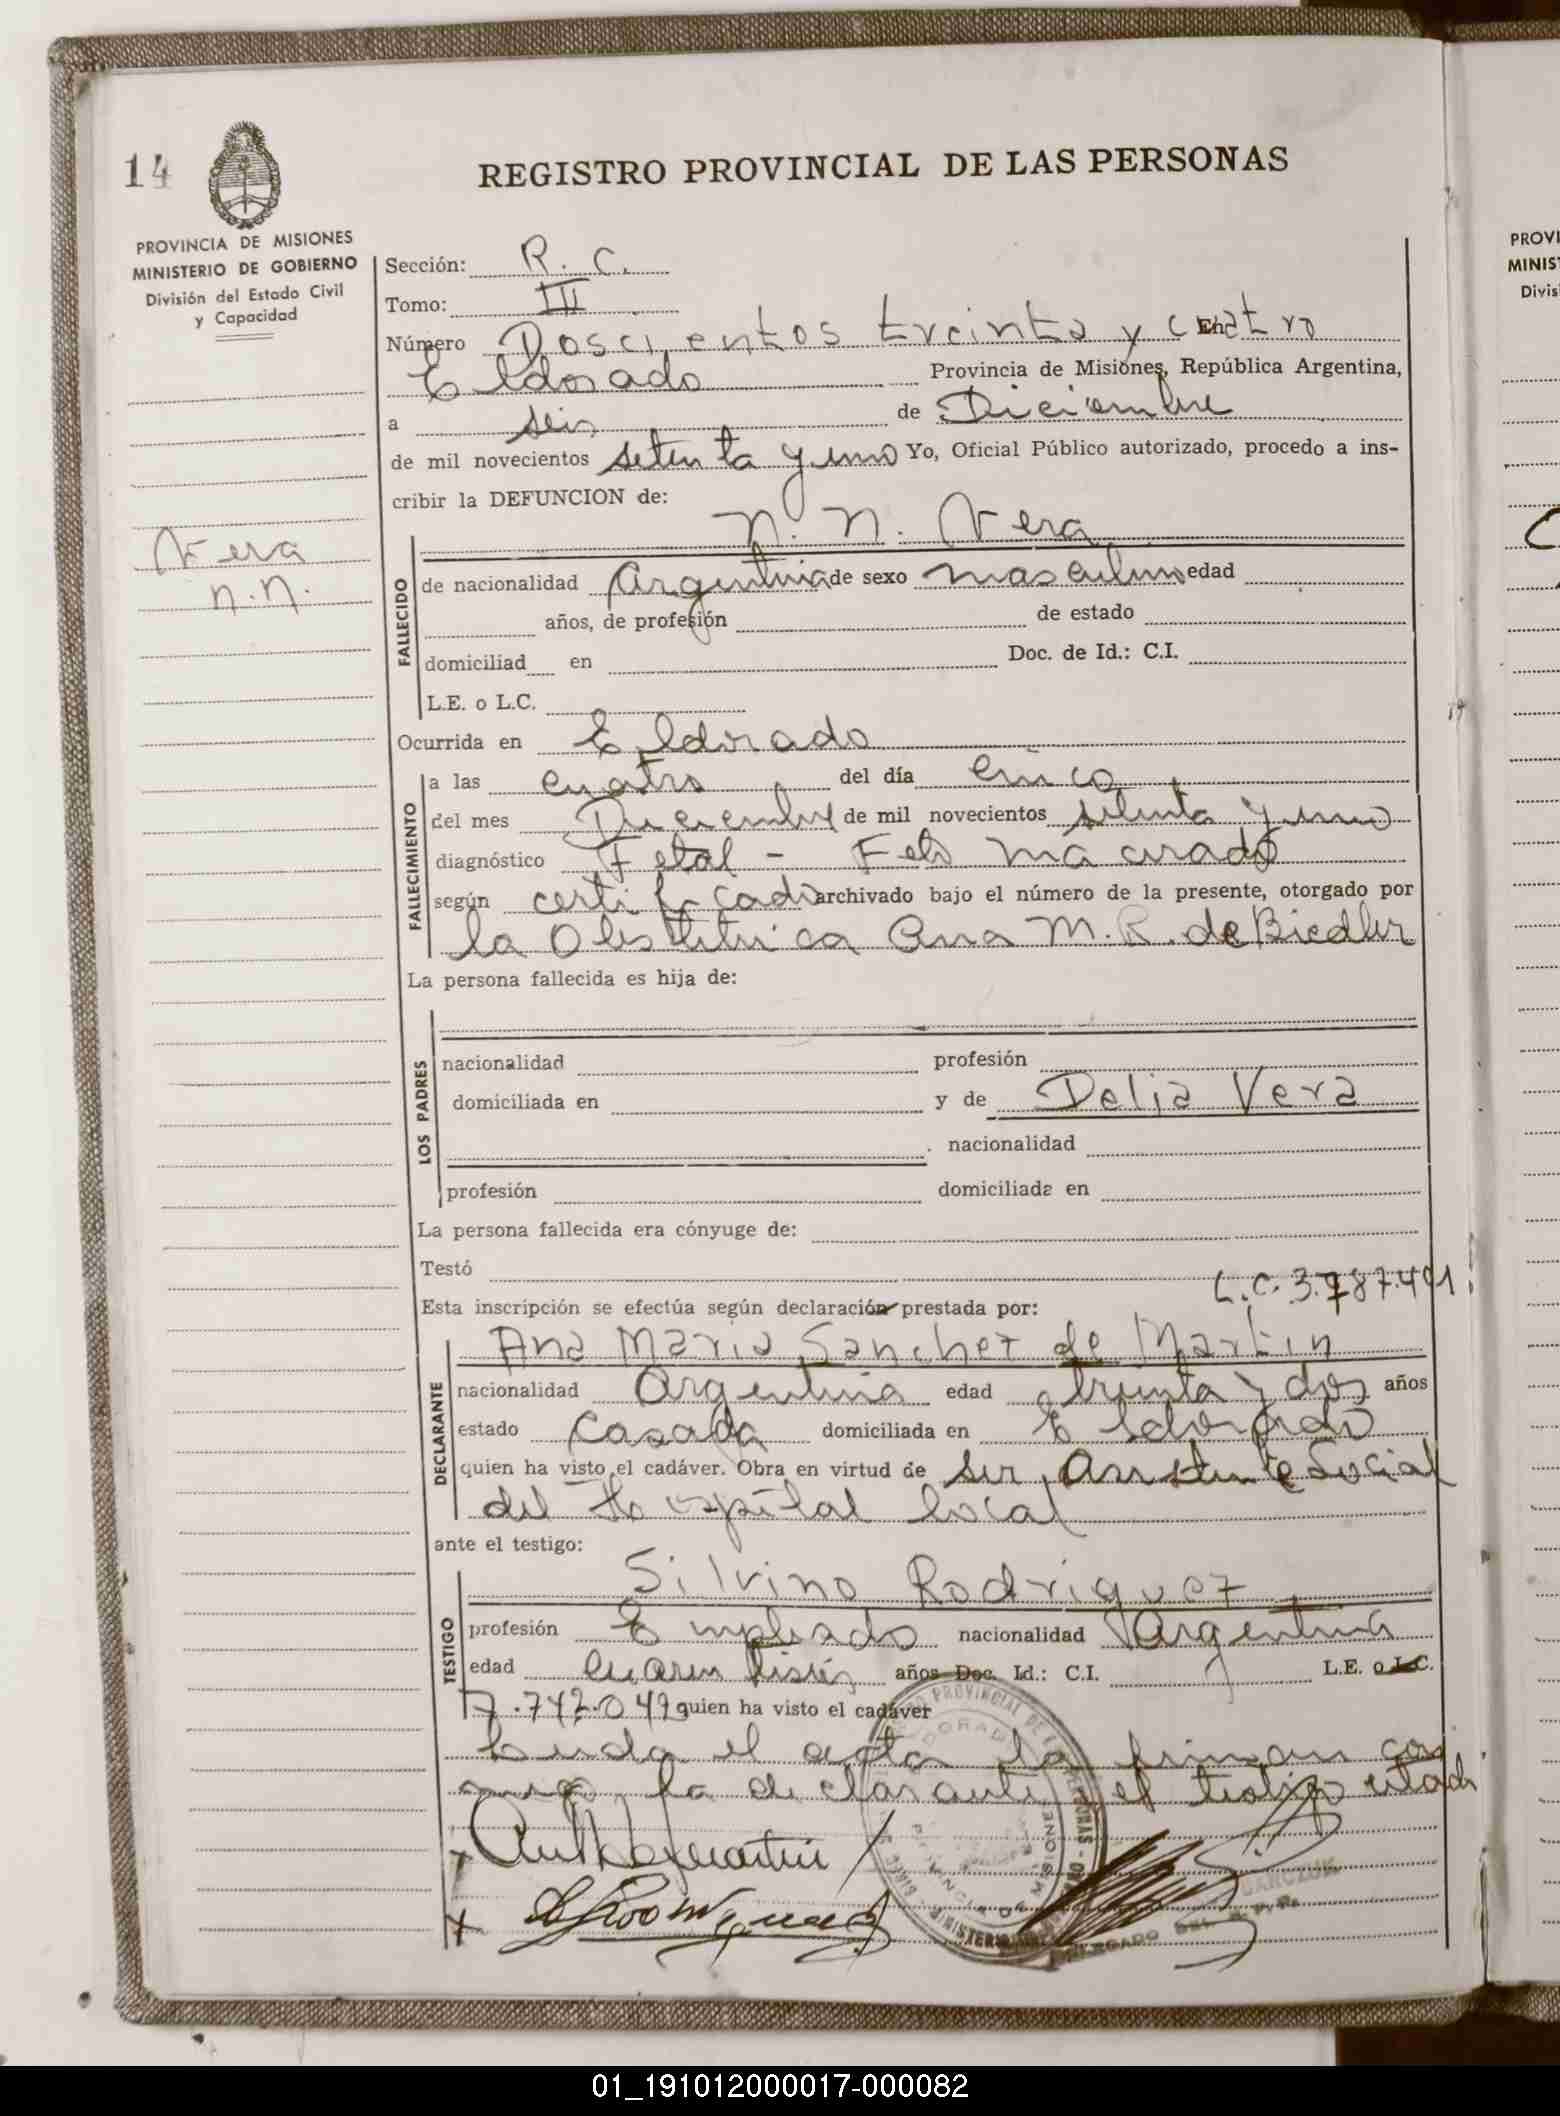 14
REGISTRO PROVINCIAL DE LAS PERSONAS
PROVINCIA DE MISIONES
MINISTERIO DE GOBIERNO
División del Estado Civil
y Capacidad
Sección: R. C.
Tomo: III
Número Doscientos treinta y cuatro En
Eldorado Provincia de Misiones, República Argentina,
a seis de Diciembre
de mil novecientos setenta y uno Yo, Oficial Público autorizado, procedo a ins-
cribir la DEFUNCION de:
N. N. Vera
Vera
N.N.
FALLECIDO
de nacionalidad Argentina de sexo masculino edad
años, de profesión de estado
domiciliad en Doc. de Id.: C.I.
L.E. o L.C.
Ocurrida en Eldorado
FALLECIMIENTO
a las cuatro del día cinco
del mes Diciembre de mil novecientos setenta y uno
diagnóstico Fetal - Feto macerado
según certificado archivado bajo el número de la presente, otorgado por
la Obstétrica Ana M. R. de Biedler
La persona fallecida es hija de:
LOS PADRES
nacionalidad profesión
domiciliada en y de Delia Vera
nacionalidad
profesión domiciliada en
La persona fallecida era cónyuge de:
Testó
L.C. 3.787.491
Esta inscripción se efectúa según declaración prestada por:
DECLARANTE
Ana Maria Sanchez de Martin
nacionalidad Argentina edad treinta y dos años
estado Casada domiciliada en Eldorado
quien ha visto el cadáver. Obra en virtud de ser Asistente Social
del Hospital local
ante el testigo:
TESTIGO
Silvino Rodriguez
profesión Empleado nacionalidad Argentina
edad años Doc. Id.: C.I. L.E. o L.C.
7.742.049 quien ha visto el cadáver
Leida el acta la firman con
migo, la declarante y el testigo citado
PROVINCIA DE MISIONES
DELEGADO
PROVI
MINIS
Divis
01_191012000017-000082